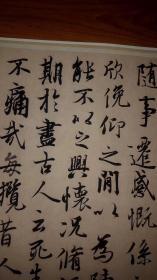 随事遷感慨係
欣俛仰之間以為陳
能不以之興懷況脩
期於盡古人云死生
不痛哉每攬昔人